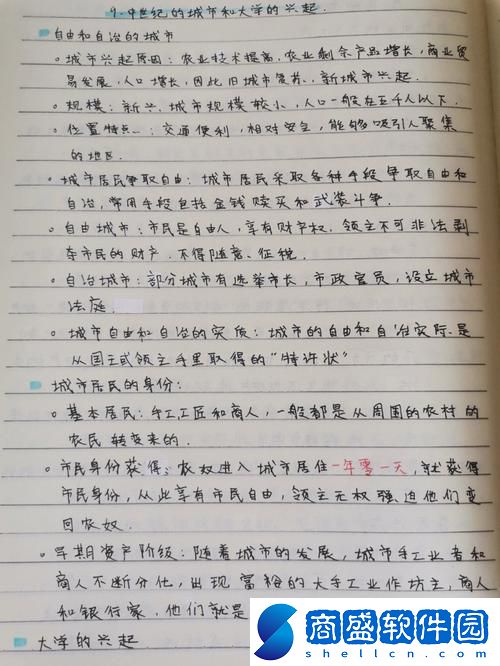 9.中世纪的城市和大学的兴起.
自由和自治的城市
。城市兴起原因：农业技术提高.农业剩余产品增长，商业贸
易发展.人口增长，因此旧城市复苏.新城市兴起.
。规模：新兴.城市规模较小，人口一般在五千人以下.
。位置特点：交通便利，相对安全，能够吸引人聚集
的地区.
。城市居民争取自由：城市居民采取各种手段争取自由和
自治，常用手段包括金钱赎买和武装斗争.
。自由城市：市民是自由人，享有财产权.领主不可非法剥
夺市民的财产.不得随意.征税.
。自治城市：部分城市有选举市长，市政官员，设立城市
法庭
。城市自由和自治的实质：城市的自由和自治实际是
从国王或领主手里取得的“特许状”
城市居民的身份：
。基本居民：手工工匠和商人，一般都是从周围的农村的
农民转变来的.
。市民身份获得：农奴进入城市居住一年零一天，就获得
市民身份，从此享有市民自由，领主无权强迫他们变
回农奴.
。早期资产阶级：随着城市的发展，城市手工业者和
商人不断分化，出现富裕的大手工业作坊主，商人
和银行家.他们就是
大学的兴起
商盛软件园
shellcn.com